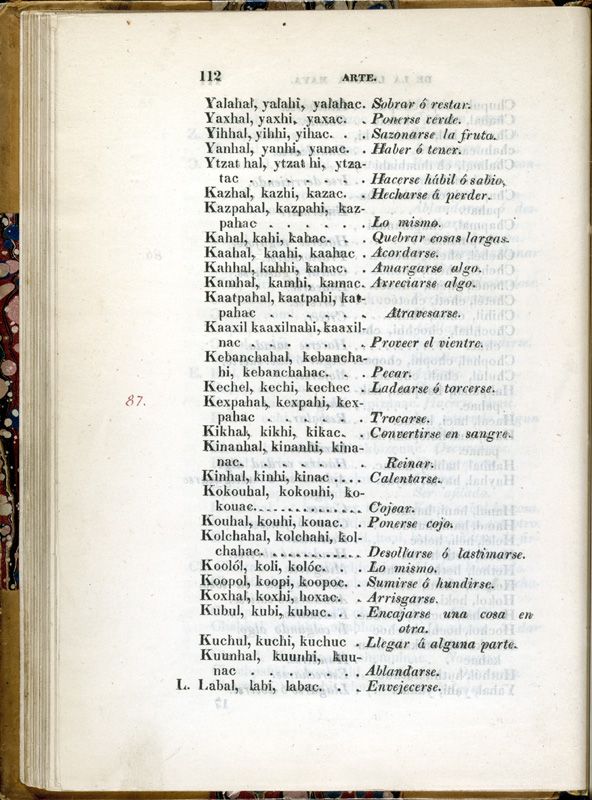 112 ARTE.
Yalahal, yalahi, yalahac. Sobrar ó restar.
Yaxhal, yaxhi, yaxac. . Ponerse verde.
Yihhal, yihhi, yihac. . . Sazonarse la fruta.
Yanhal, yanhi, yanac. . Haber ó tener.
Ytzat hal, ytzat hi, ytza-
tac . . . . . . . Hacerse hábil ó sabio.
Kazhal, kazhi, kazac. . Hecharse á perder.
Kazpahal, kazpahi, kaz-
pahac . . . . . . Lo mismo.
Kahal, kahi, kahac. . . Quebrar cosas largas.
Kaahal, kaahi, kaahac . Acordarse.
Kahhal, kahhi, kahac. . Amargarse algo.
Kamhal, kamhi, kamac. Avreciarse algo.
Kaatpahal, kaatpahi, kat-
pahac . . . . . . Atravesarse.
Kaaxil kaaxilnahi, kaaxil-
nac . . . . . . . Proveer el vientre.
Kebanchahal, kebancha-
hi, kebanchahac. . . Pecar.
Kechel, kechi, kechec . Ladearse ó torcerse.
87.
Kexpahal, kexpahi, kex-
pahac . . . . . . Trocarse.
Kikhal, kikhi, kikac. . Convertirse en sangre.
Kinanhal, kinanhi, kina-
nac. . . . . . . Reinar.
Kinhal, kinhi, kinac .... Calentarse.
Kokouhal, kokouhi, ko-
kouac.............. Cojear.
Kouhal, kouhi, kouac. . Ponerse cojo.
Kolchahal, kolchahi, kol-
chahac............. Desollarse ó lastimarse.
Koolól, koli, kolóc. . . Lo mismo.
Koopol, koopi, koopoc. . Sumirse ó hundirse.
Koxhal, koxhi, hoxac. . Arrisgarse.
Kubul, kubi, kubuc. . . Encajarse una cosa en
otra.
Kuchul, kuchi, kuchuc . Llegar á alguna parte.
Kuunhal, kuunhi, kuu-
nac . . . . . . . Ablandarse.
L. Labal, labi, labac. . . Envejecerse.